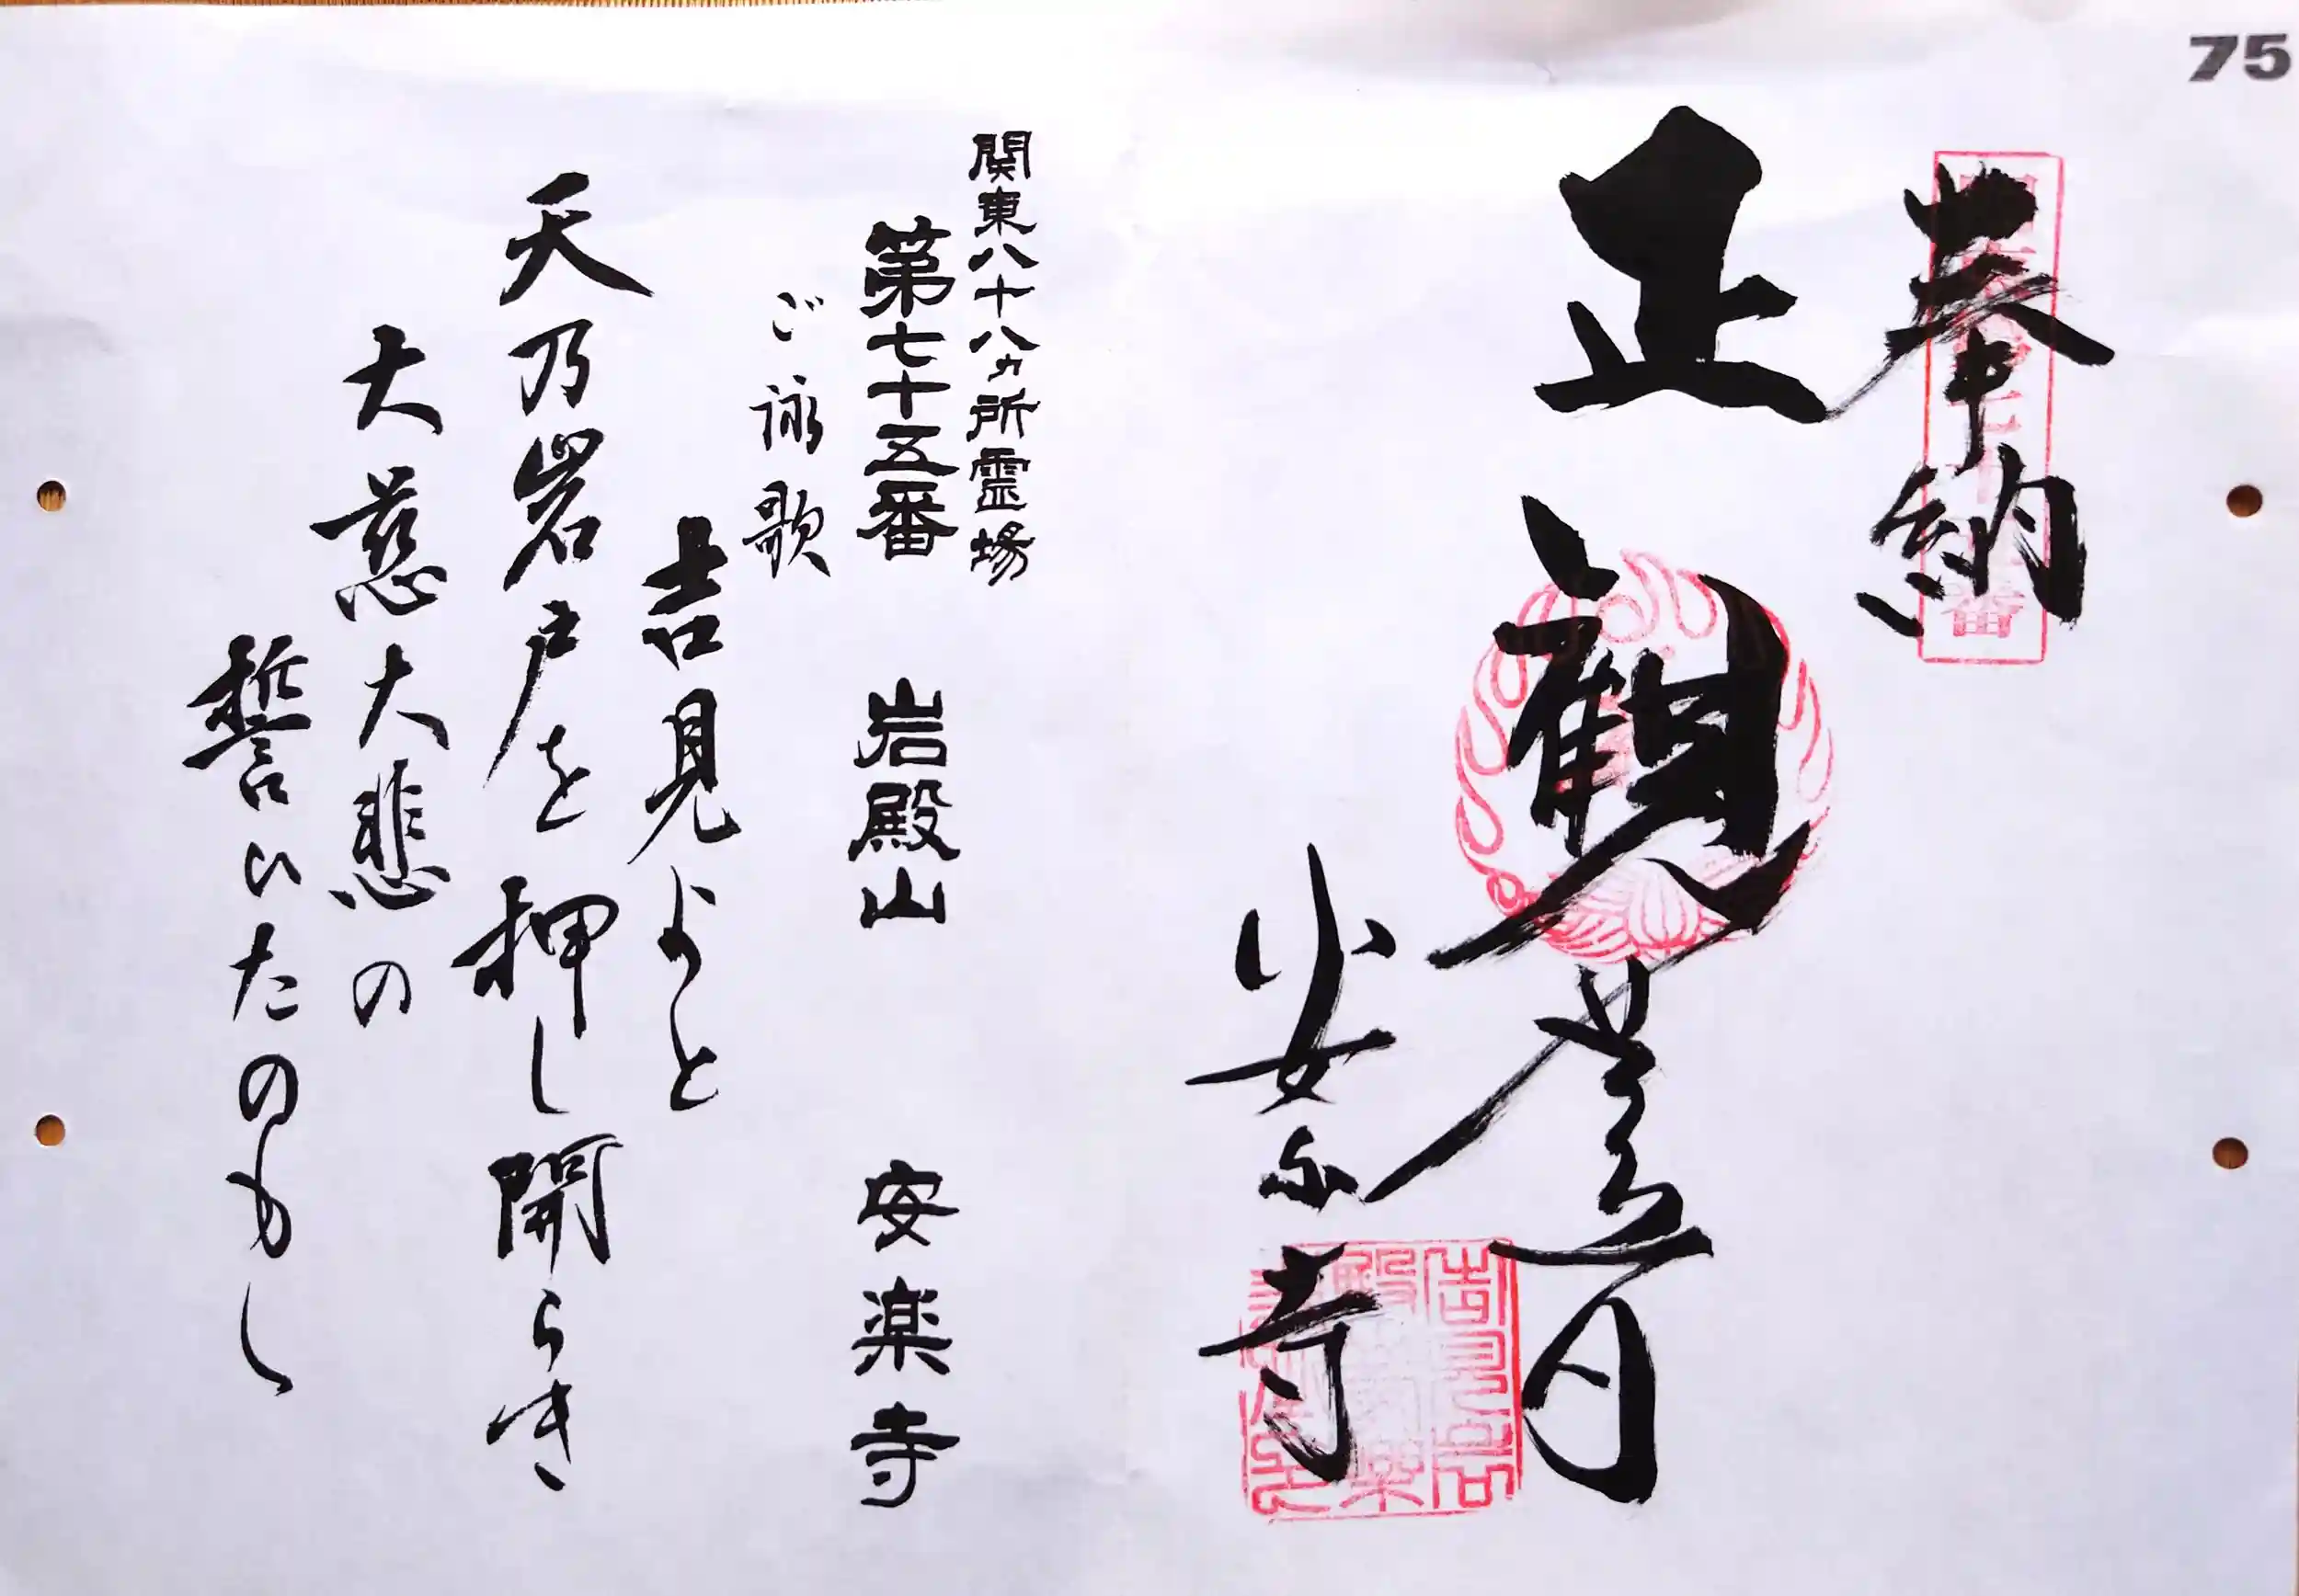 75
奉納
正観世音
安楽寺
関東八十八ヵ所霊場
第七十五番 岩殿山 安楽寺
ご詠歌
吉見よと
天乃岩戸を押し開らき
大慈大悲の
誓いたのもし